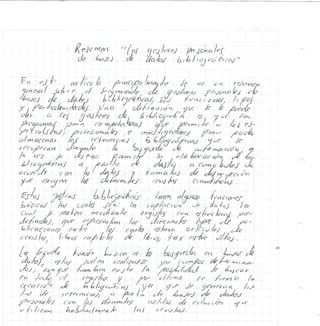 Resumen "Los gestores personales
de bases de datos bibliográficos"
En est artículo principalmente se ve un resumen
general sobre el seguimiento de gestores personales de
bases de datos bibliográficas, sus funciones, tipos
y particularidades. Una definición que se le puede
dar a los gestores de bibliografía es, que son
programas para computadoras que permite a los es-
pecialistas, profesionales e investigadores poder
almacenar las referencias bibliográficas que se
recuperan durante la búsqueda de información, a
la vez, a dichos permite la elaboración de
bibliografías a partir de dichos
acuerdo con los datos y formatos de descripción
que exigen las diferentes revistas científicas.
Estos gestores bibliográficos tienen algunas funciones
básicas las cuales son: la captación de datos, lo
cual se realiza mediante registros con estructuras
definidas, que representan los diferentes tipos de pu-
blicaciones entre los cuales están artículos de
revistas, libros, capítulos de libros, tesis entre otros.
La segunda función básica es la búsqueda en bases de
datos, ellas pueden realizarse por campos determina-
dos, aunque también existe la posibilidad de buscar
en todo el registro y por último se tiene la
creación de bibliografías ya que se generan lis-
tas de referencias, a partir de bases de datos
personales con los diferentes estilos de citación que
utilizan habitualmente las revistas.